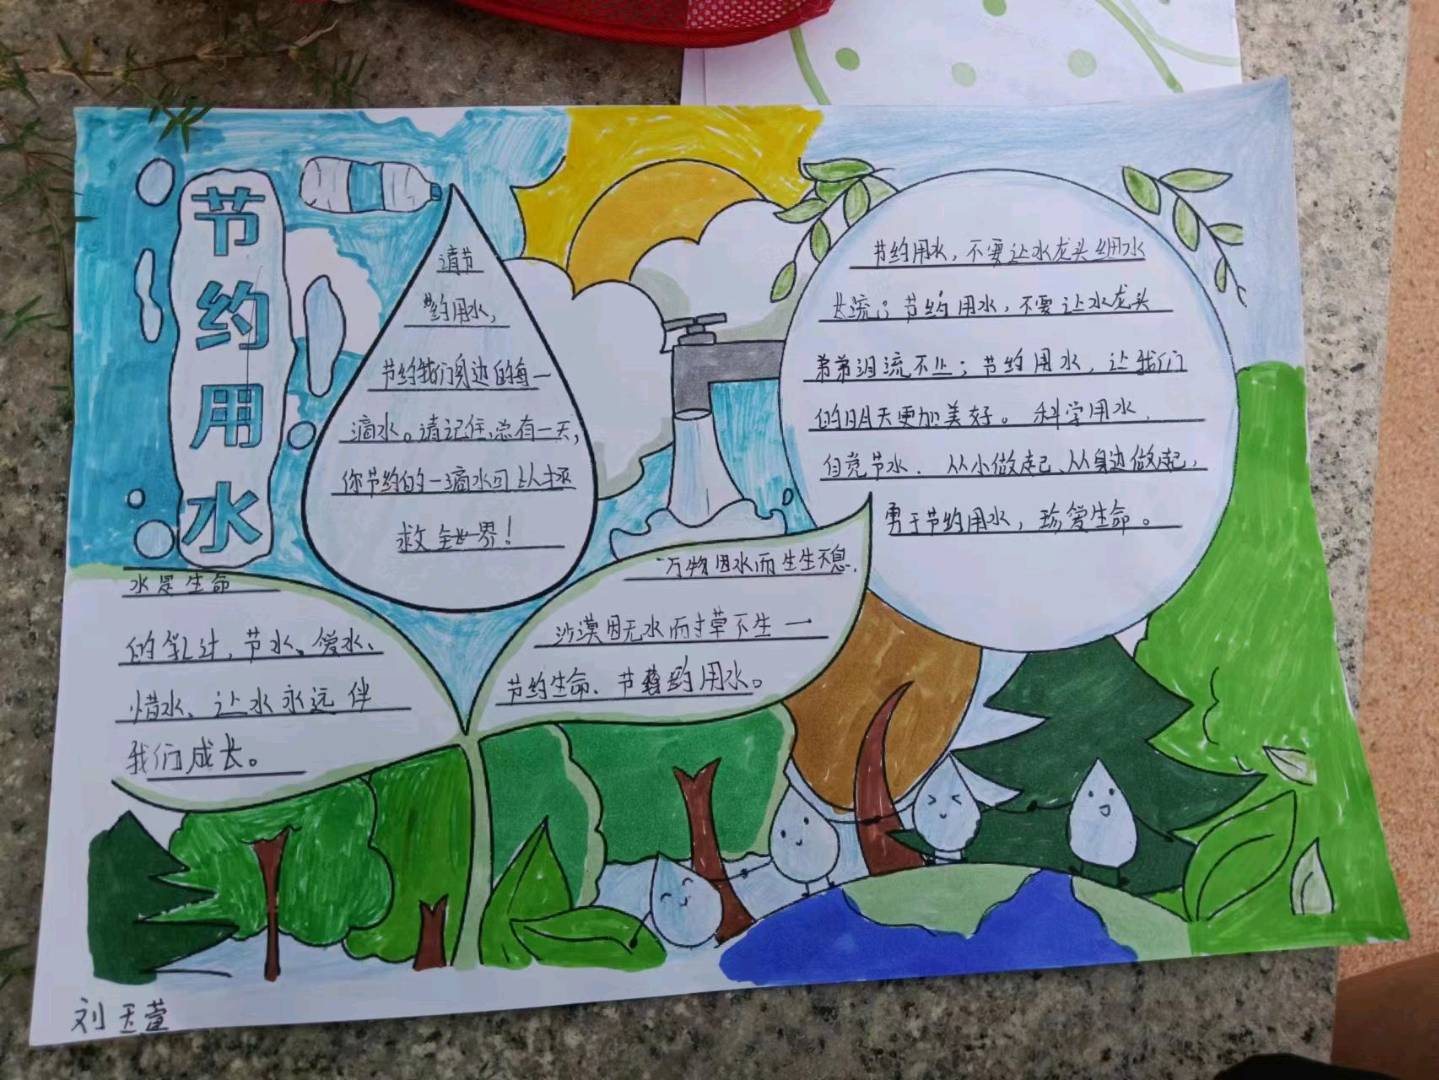 节约用水
请节
约用水,
节约我们身边的每一
滴水。请记住,总有一天,
你节约的一滴水可以拯
救全世界!
节约用水,不要让水龙头细水
长流;节约用水,不要让水龙头
泪流不止;节约用水,让我们
的明天更加美好。科学用水.
自觉节水.从小做起、从身边做起,
勇于节约用水,珍爱生命。
水是生命
的乳汁,节水、爱水、
惜水、让水永远伴
我们成长。
万物因水而生生不息.
沙漠因无水而寸草不生一
节约生命、节约用水。
刘玉萱